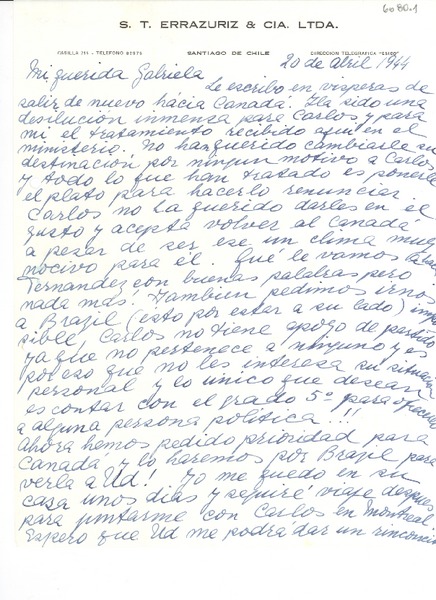 6080.1
S. T. ERRAZURIZ & CIA. LTDA.
SANTIAGO DE CHILE
20 de abril 1944
Mi querida Gabriela
Le escribo en vísperas de
salir de nuevo hácia Canadá. Ha sido una
desilución inmensa para Carlos y para
mi el tratamiento recibido aqui en el
ministerio. No han querido cambiarle su
destinación por ningun motivo a Carlos
y todo lo que han tratado es ponerle
el plato para hacerlo renunciar.
Carlos no ha querido darles en el
gusto y acepta volver al Canadá
a pesar de ser ese un clima muy
nocivo para él. Qué le vamos
Fernandez con buenas palabras pero
nada más! Tambien pedimos irnos
a Brazil (esto por estar a su lado) impo
sible! Carlos no tiene apoyo de partido
ya que no pertenece a ninguno y es
por eso que no les interesa su situación
personal y lo unico que desean
es contar con el grado 5º para ofrecerlo
a alguna persona política!!!
Ahora hemos pedido prioridad para
Canadá y lo haremos por Brazil para
verla a Ud! Yo me quedo en su
casa unos días y seguiré viaje despues
para juntarme con Carlos en Montreal.
Espero que Ud me podrá dar un rinconcito